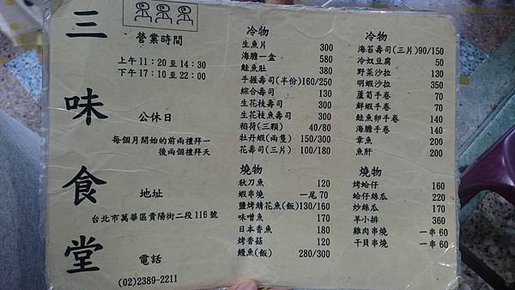 三味食堂
營業時間
上午11:20至14:30
下午17:10至22:00
公休日
每個月開始的前兩禮拜一
後兩個禮拜天
地址
台北市萬華區貴陽街二段116號
電話
(02)2389-2211
冷物
生魚片 300
海膽一盒 580
鮭魚肚 380
手握壽司(半份)160/250
綜合壽司 130
生花枝壽司 130
生花枝魚壽司 130
稻荷(三顆) 40/80
牡丹蝦(兩隻) 150/300
花壽司(三片) 100/180
燒物
秋刀魚 120
蝦串燒 一尾70
鹽烤鯖花魚(飯)130/160
味噌魚 170
日本香魚 180
烤香菇 120
鰻魚(飯) 280/300
冷物
海苔壽司(三片)90/150
冷奴豆腐 50
野菜沙拉 130
明蝦沙拉 350
蘆筍手卷 70
鮮蝦手卷 70
鮭魚卵手卷 140
海膽手卷 140
章魚 200
魚肝 200
燒物
烤蛤仔 160
蛤仔絲瓜 220
炒絲瓜 170
羊小排 360
雞肉串燒 一串60
干貝串燒 一串60